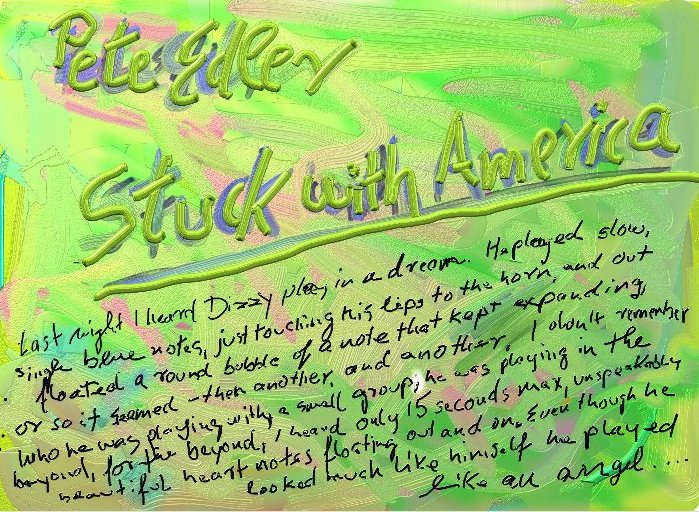 Pete Edler
Stuck with America
Last night I heard Dizzy play in a dream. He played slow,
single blue notes, just touching his lips to the horn, and out
floated a round bubble of a note that kept expanding
or so it seemed - then another, and another. I don't remember
who he was playing with, a small group, he was playing in the
beyond, for the beyond, I heard only 15 seconds max, unspeakably
beautiful heart notes floating out and on. Even though he
looked much like himself he played
like an angel....